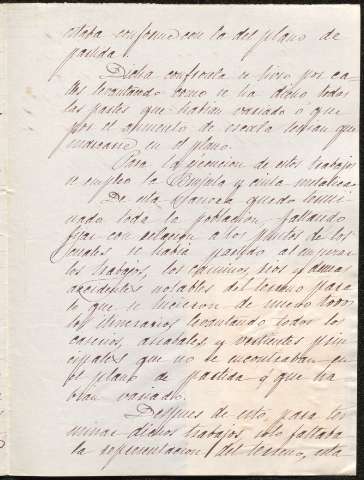 estaba conforme con la del plano de
partida.
Dicha confronta se hizo por ca-
lles levantando como se ha dicho todas
las partes que habian variado ó que
por el aumento de escala tenian que
marcarse en el plano.
Para la ejecucion de estos trabajos
se empleó la Brújula y cinta metálica.
De esta manera quedó termi-
nada toda la poblacion faltando
fijar con relacion a los puntos de los
cuales se habia partido al empezar
los trabajos, los caminos, rios y demas
accidentes notables del terreno para
lo que se hicieron de nuevo todos
los itinerarios levantando todos los
caserios, arrabales y vertientes prin-
cipales que no se encontraban en
el plano de partida ó que ha-
bian variado.
Despues de esto, para ter-
minar dichos trabajos solo faltaba
la representacion del terreno, esta